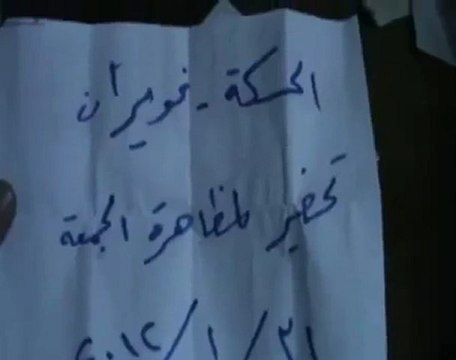 الحسكة - غويران
تحضير لمظاهرة الجمعة
٣١/١/٢٠١٢